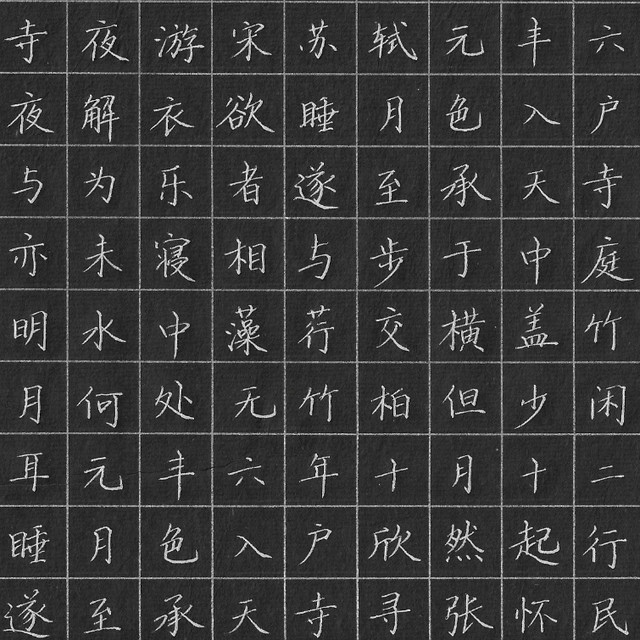 寺夜游宋苏轼元丰六
夜解衣欲睡月色入户
与为乐者遂至承天寺
亦未寝相与步于中庭
明水中藻荇交横盖竹
月何处无竹柏但少闲
耳元丰六年十月十二
睡月色入户欣然起行
遂至承天寺寻张怀民